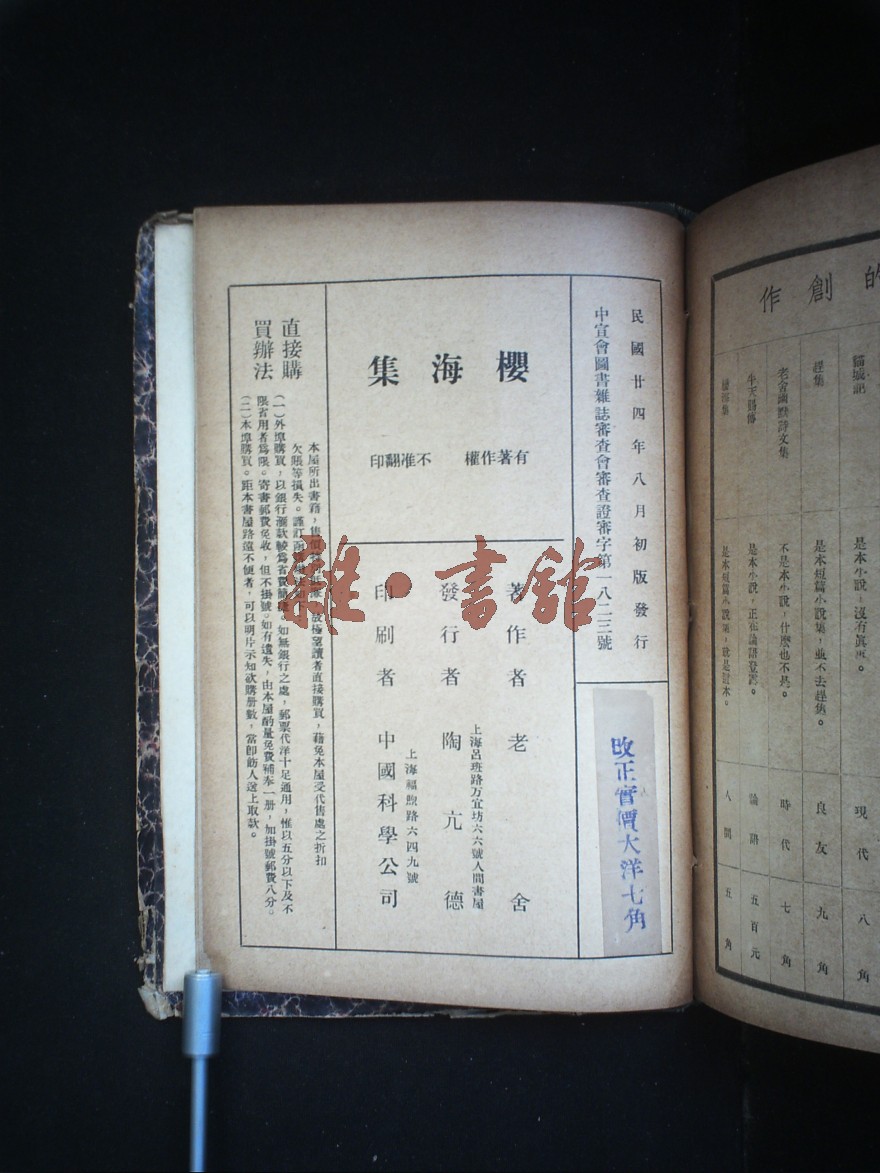 民國廿四年八月初版發行
中宣會圖書雜誌審查會審查證審字第一八二三號
改正實價大洋七角
櫻海集
有著作權 不准翻印
著作者 老舍
上海呂班路万宜坊六六號人間書屋
發行者 陶亢德
上海福煦路六四九號
印刷者 中國科學公司
直接購
買辦法
本屋所出書籍，售價 讀者直接購買，藉免本屋受代售處之折扣
欠賬等損失。謹訂
（一）外埠購買，以銀行滙款較爲省費簡 。如無銀行之處，郵票代洋十足通用，惟以五分以下及不
限省用者爲限。寄書郵費免收，但不掛號。如有遺失，由本屋酌量免費補奉一册，加掛號郵費八分。
（二）本埠購買。距本書屋路遠不便者，可以明片示知欲購册數，當即飭人送上取款。
的創作
貓城記 是本小說，沒有眞事。 現代 八角
趕集 是本短篇小說集，並不去趕集。 良友 九角
老舍幽默詩文集 不是本小說，什麼也不是。 時代 七角
牛天賜傳 是本小說，正在論語登載。 論語 五百元
櫻海集 是本短篇小說集， 人間 五角
雜·書館